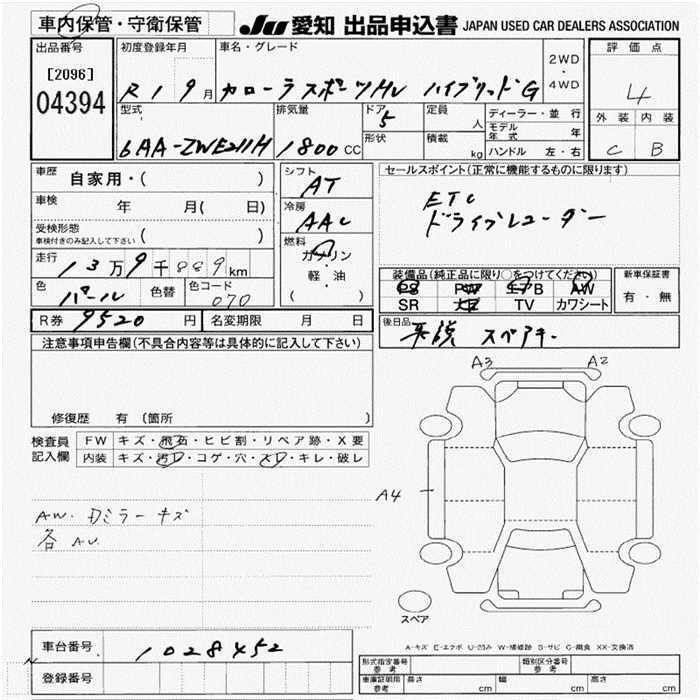 車内保管・守衛保管 JU 愛知 出品申込書 JAPAN USED CAR DEALERS ASSOCIATION
出品番号 初度登録年月 車名・グレード 2WD・4WD 評価点
[2096] 04394 R1 9月 カローラスポーツHV ハイブリッドG 4
外装 内装
C B
型式 排気量 ドア 定員 人 ディーラー・並行
6AA-ZWE211H 1800CC 5 モデル年式 年
形状 積載 kg ハンドル 左・右
車歴 自家用・( ) シフト AT セールスポイント(正常に機能するものに限ります)
車検 年 月( 日) 冷房 AAC ETC
ドライブレコーダー
受検形態
車検付きのみ記入して下さい ( )
燃料 ガソリン・軽・油 ( )
走行 13万9千889km
装備品(純正品に限り○をつけてください) 新車保証書
PS PW AW
SR TV カワシート 有・無
色 パール 色替 色コード 070
R券 9520円 名変期限 月 日 後日品 スペアキー
注意事項申告欄(不具合内容等は具体的に記入して下さい)
修復歴 有(箇所
A3 A2
検査員記入欄 FW キズ・飛石・ヒビ割・リペア跡・X要
内装 キズ・汚レ・コゲ・穴・スレ・キレ・破レ
A4
AW. ミラーキズ
各AU
スペア
A-キズ E-エクボ U-凹み W-補修跡 S-サビ C-腐食 XX-交換済
車台番号 1028452
登録番号
型式指定番号 参考 類別区分番号 参考
車庫証明用 参考 長さ cm 幅 cm 高さ cm